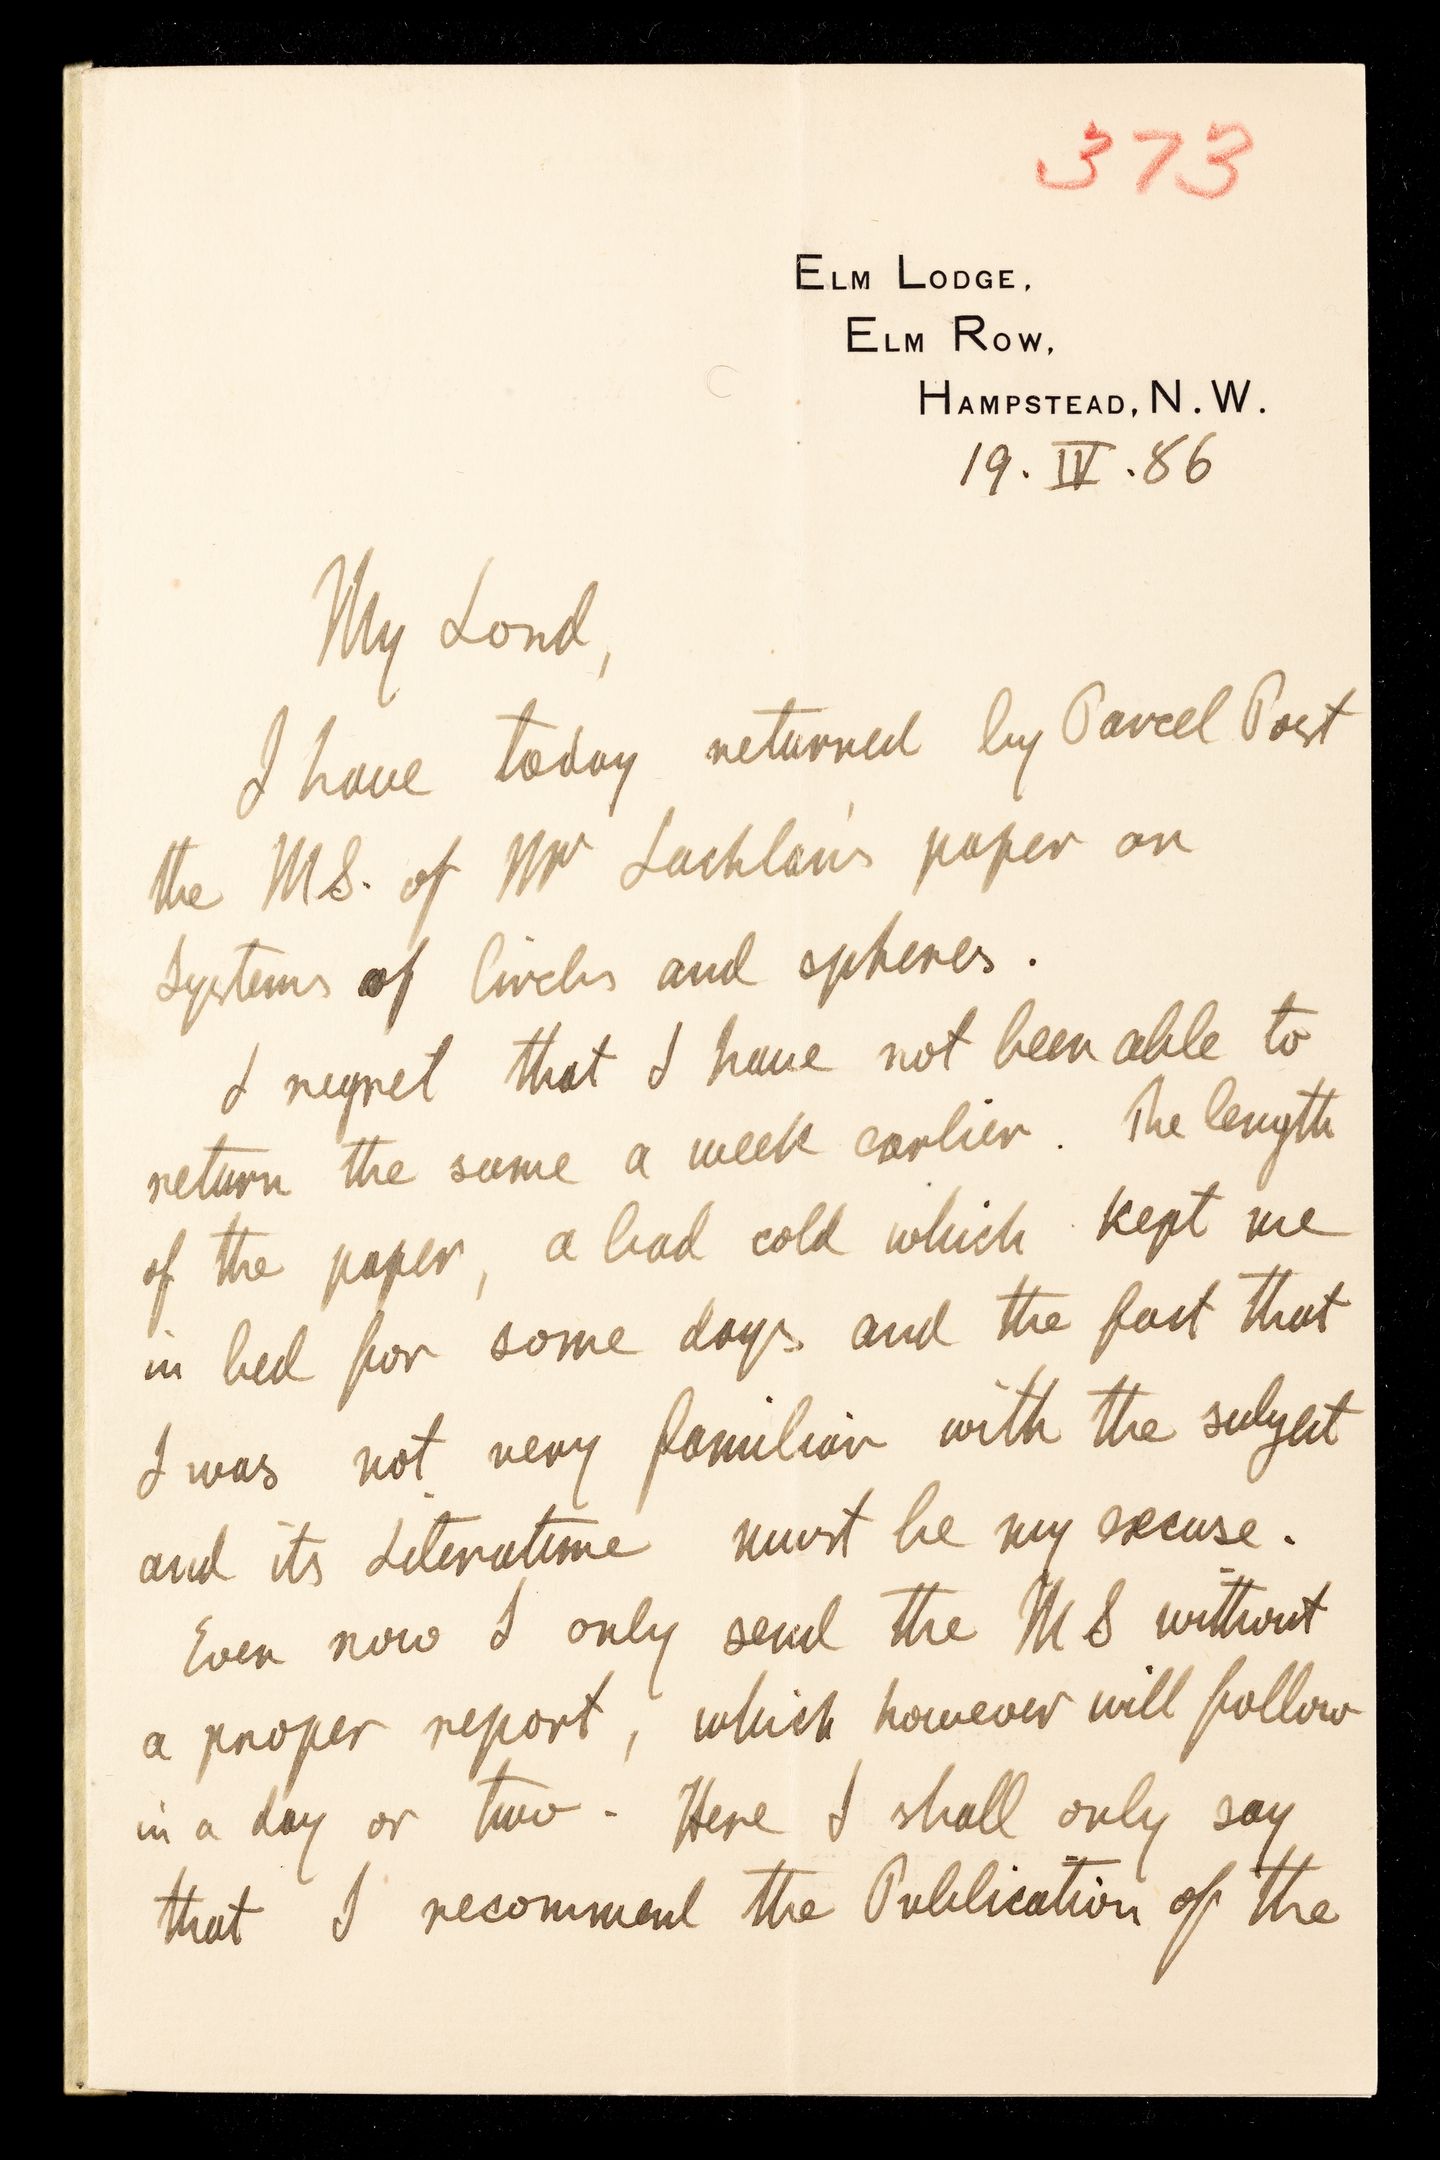 373
ELM LODGE,
ELM ROW,
HAMPSTEAD, N.W.
19. IV. 86
My Lord,
I have today returned by Parcel Post
the MS. of Mr Lachlan's paper on
Systems of Circles and spheres.
I regret that I have not been able to
return the same a week earlier. The length
of the paper, a bad cold which kept me
in bed for some days and the fact that
I was not very familiar with the subject
and its Literature must be my excuse.
Even now I only send the MS without
a proper report, which however will follow
in a day or two - Here I shall only say
that I recommend the Publication of the